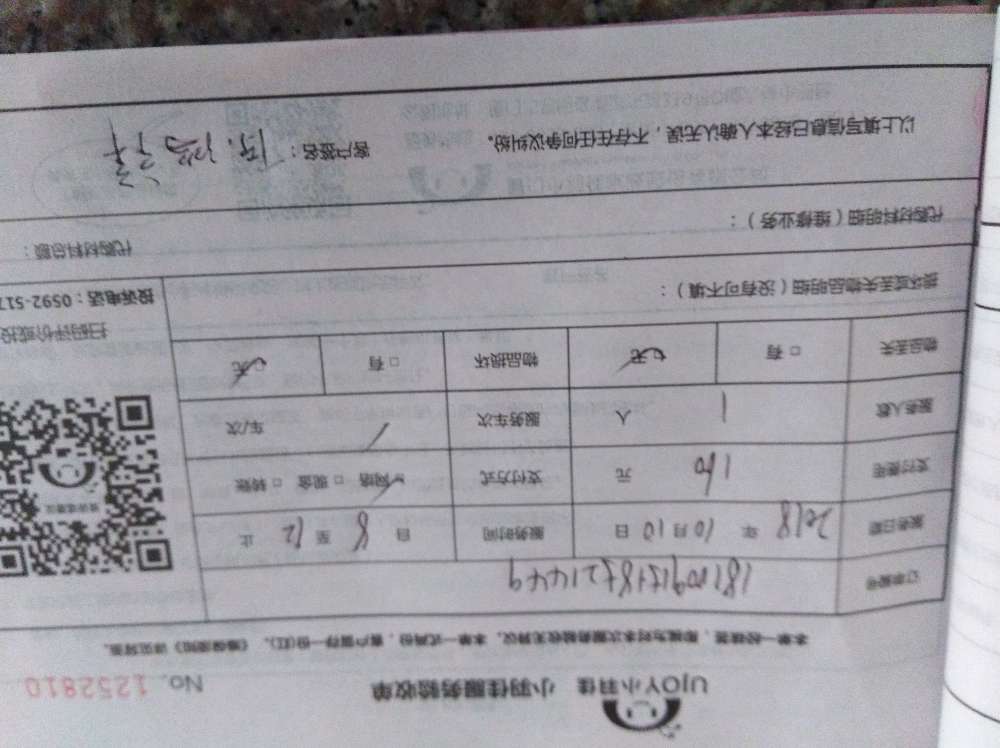 UJOY小羽佳 小羽佳服务验收单 No. 1252810
本单一经填签，即视为对本次服务验收无异议，本单一式两份，客户留存一份(红)。《温馨须知》详见背面。
订单编号
服务日期 2018 年 10 月 10 日 服务时间 自 8 至 12 止
支付费用 160 元 支付方式 网络 □ 现金 □ 转账
服务人数 1 人 服务车次 / 车/次
物品丢失 □ 有 无 物品损坏 □ 有 无
损坏或丢失物品明细（没有可不填）：
扫码评价或投
投诉电话：0592-517
代购材料明细（维修业务）： 代购材料总额：
以上填写信息已经本人确认无误，不存在任何争议纠纷。 客户签名：